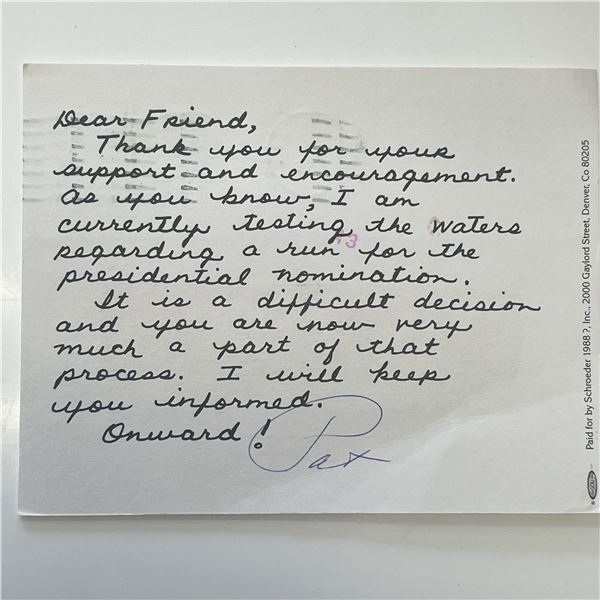 Dear Friend,
Thank you for your
support and encouragement.
As you know, I am
currently testing the waters
regarding a run for the
presidential nomination.
It is a difficult decision
and you are now very
much a part of that
process. I will keep
you informed.
Onward!
Pat
Paid for by Schroeder 1988 ?, Inc., 2000 Gaylord Street, Denver, Co 80205